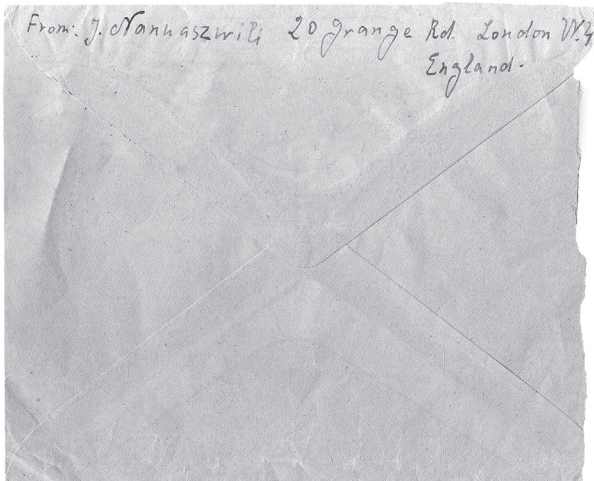 From: J. Nannaszwili 20 Grange Rd. London W.4
England.